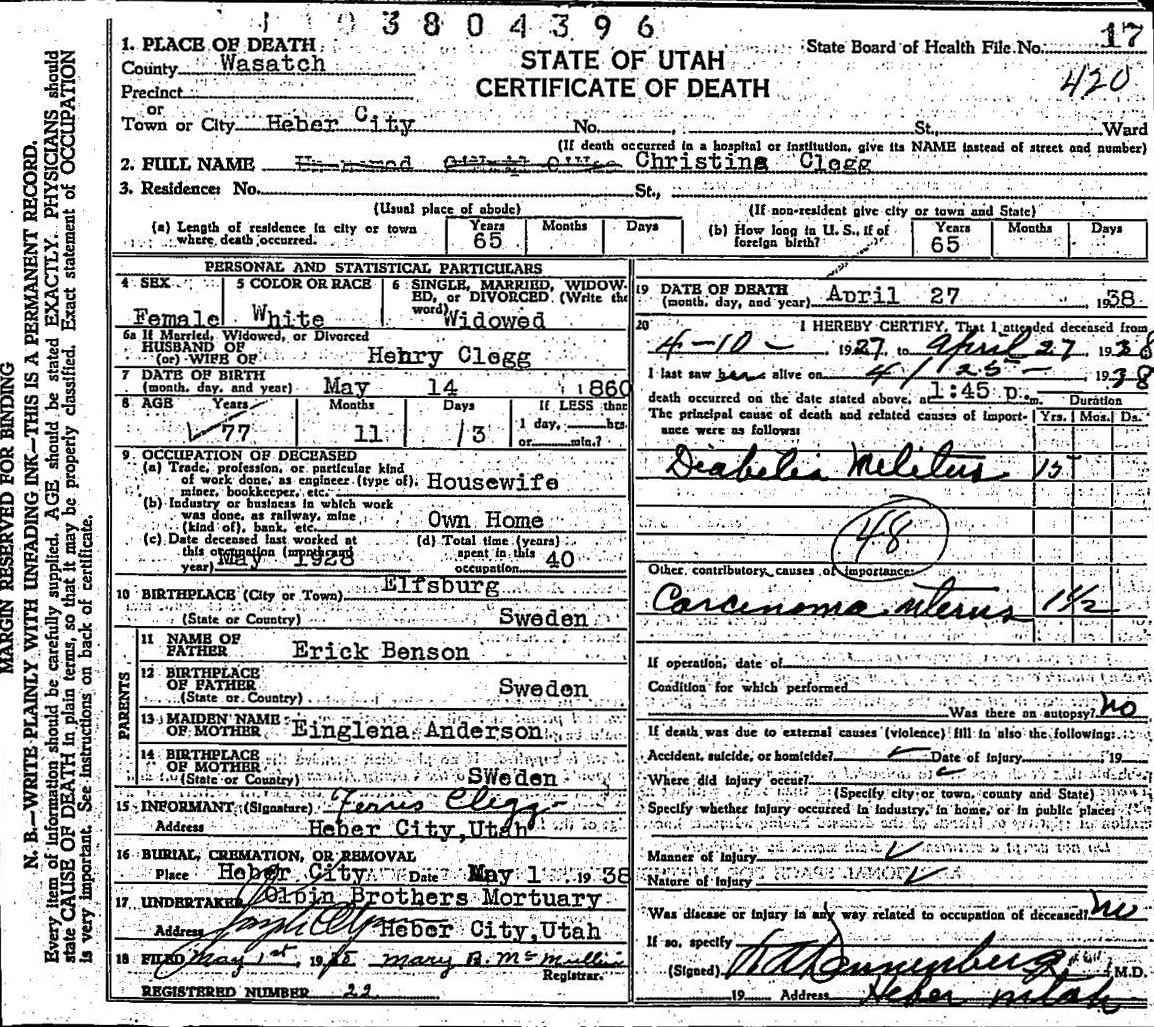 1 0 3 8 0 4 3 9 6
1. PLACE OF DEATH
County Wasatch
Precinct
or
Town or City Heber City No. , St., Ward
STATE OF UTAH
CERTIFICATE OF DEATH
State Board of Health File No. 17
420
(If death occurred in a hospital or institution, give its NAME instead of street and number)
2. FULL NAME Christina Clegg
3. Residence: No. St.,
(Usual place of abode) (If non-resident give city or town and State)
(a) Length of residence in city or town where death occurred. Years 65 Months Days
(b) How long in U. S., if of foreign birth? Years 65 Months Days
PERSONAL AND STATISTICAL PARTICULARS
4 SEX Female
5 COLOR OR RACE White
6 SINGLE, MARRIED, WIDOWED, or DIVORCED (Write the word) Widowed
6a If Married, Widowed, or Divorced
HUSBAND OF
(or) WIFE OF Henry Clegg
7 DATE OF BIRTH
(month, day, and year) May 14 1860
8 AGE Years 77 Months 11 Days 13 If LESS than
1 day, hrs.
or min.?
9 OCCUPATION OF DECEASED
(a) Trade, profession, or particular kind
of work done, as engineer (type of),
miner, bookkeeper, etc. Housewife
(b) Industry or business in which work
was done, as railway, mine
(kind of), bank, etc. Own Home
(c) Date deceased last worked at
this occupation (month and
year) May 1928
(d) Total time (years)
spent in this
occupation 40
10 BIRTHPLACE (City or Town) Elfsburg
(State or Country) Sweden
PARENTS
11 NAME OF
FATHER Erick Benson
12 BIRTHPLACE
OF FATHER
(State or Country) Sweden
13 MAIDEN NAME
OF MOTHER Einglena Anderson
14 BIRTHPLACE
OF MOTHER
(State or Country) SWeden
15 INFORMANT (Signature) Ferris Clegg
Address Heber City,Utah
16 BURIAL, CREMATION, OR REMOVAL
Place Heber City Date May 1 19 38
17 UNDERTAKER Olpin Brothers Mortuary
Address Heber City,Utah
18 FILED May 1st, 19 Mary B. McMullin
Registrar.
REGISTERED NUMBER 22
19 DATE OF DEATH
(month, day, and year) April 27 1938
20 I HEREBY CERTIFY, That I attended deceased from
4-10- , 1927, to April 27, 1938
I last saw her alive on 4/25- 1938
death occurred on the date stated above, at 1:45 p.m. Duration
The principal cause of death and related causes of importance were as follows: Yrs. Mos. Ds.
Diabetis Melitus 15
48
Other contributory causes of importance:
Carcinoma uterus 1 1/2
If operation, date of
Condition for which performed
Was there an autopsy? no
If death was due to external causes (violence) fill in also the following:
Accident, suicide, or homicide? Date of injury 19
Where did injury occur?
(Specify city or town, county and State)
Specify whether injury occurred in industry, in home, or in public place:
Manner of injury
Nature of injury
Was disease or injury in any way related to occupation of deceased? no
If so, specify
(Signed) M.D.
19 Address Heber Utah
MARGIN RESERVED FOR BINDING
N. B.—WRITE PLAINLY WITH UNFADING INK—THIS IS A PERMANENT RECORD.
Every item of information should be carefully supplied. AGE should be stated EXACTLY. PHYSICIANS should
state CAUSE OF DEATH in plain terms, so that it may be properly classified. Exact statement of OCCUPATION
is very important. See instructions on back of certificate.